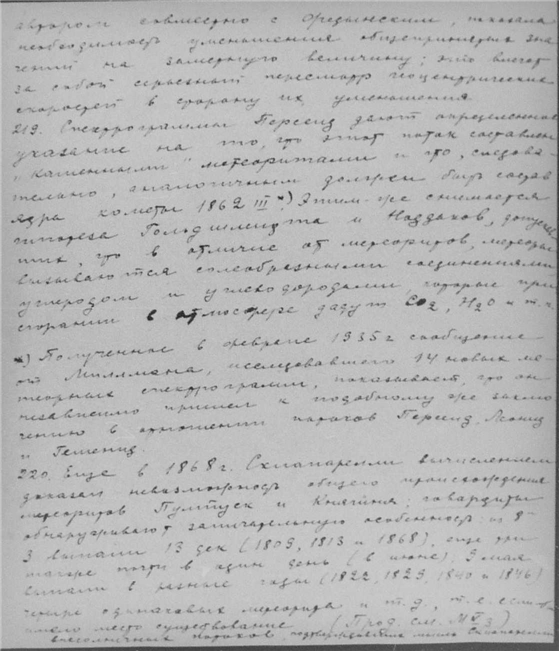 автором совместно с Орединским, показала
необходимость уменьшения общепринятых зна
чений на заметную величину; это влечет
за собой серьезный пересмотр геоцентрических
скоростей в сторону их уменьшения
219. Спектрограммы Персеид дают определенное
указание на то, что этот поток составлен
"каменными" метеоритами и что, следова
тельно, аналогичным должен быть состав
ядра кометы 1862 III *) Этим-же снимается
гипотеза Гольдшмидта и
что в отличие от метеоритов, метеоры
вызываются солеобразными соединениями
углеродом и углеводородами, которые при
сгорании в атмосфере дадут CO2, H2O и т.п.
*) Полученное в феврале 1935 г сообщение
от Миллмана, исследовавшего 14 новых ме
теорных спектрограмм, показывает, что он
независимо пришел к подобному же заклю
чению в отношении потоков Персеид, Леонид
и Геминид.
220. Еще в 1868 г. Скиапарелли вычислением
доказал невозможность общего происхождения
метеоритов Пултуск и Княгиня; говардиты
обнаруживают замечательную особенность: из 8
3 выпали 13 дек (1803, 1813 и 1868), еще три
почти в один день (в июне), 9 мая
выпали в разные годы (1822, 1829, 1840 и 1846)
четыре одинаковых метеорита и т.д., т.е. если бы
имело место существование (Прод. см. М 3)
внесолнечных потоков, подтверждалась мысль Скиапарелли